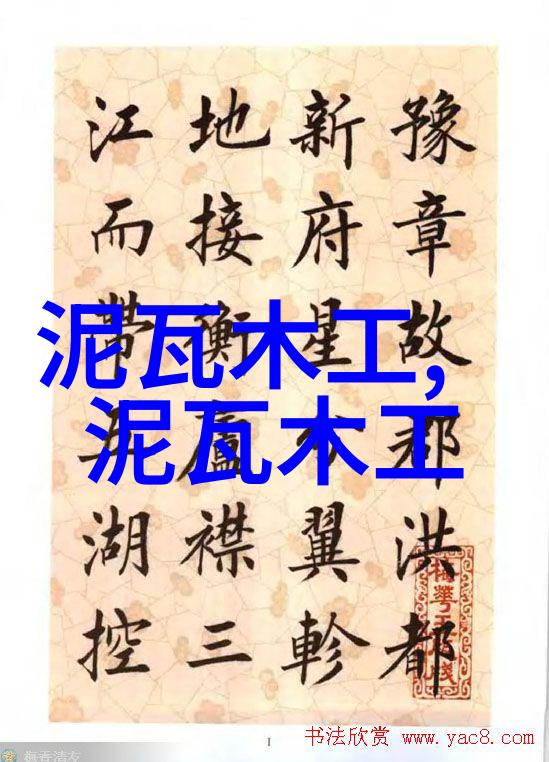 豫章故郡洪都
新府星分翼軫
地接衡廬襟三
江而帶五湖控
泥瓦木工,
泥瓦木工
1
书法欣赏 www.yac8.com
梅香清友